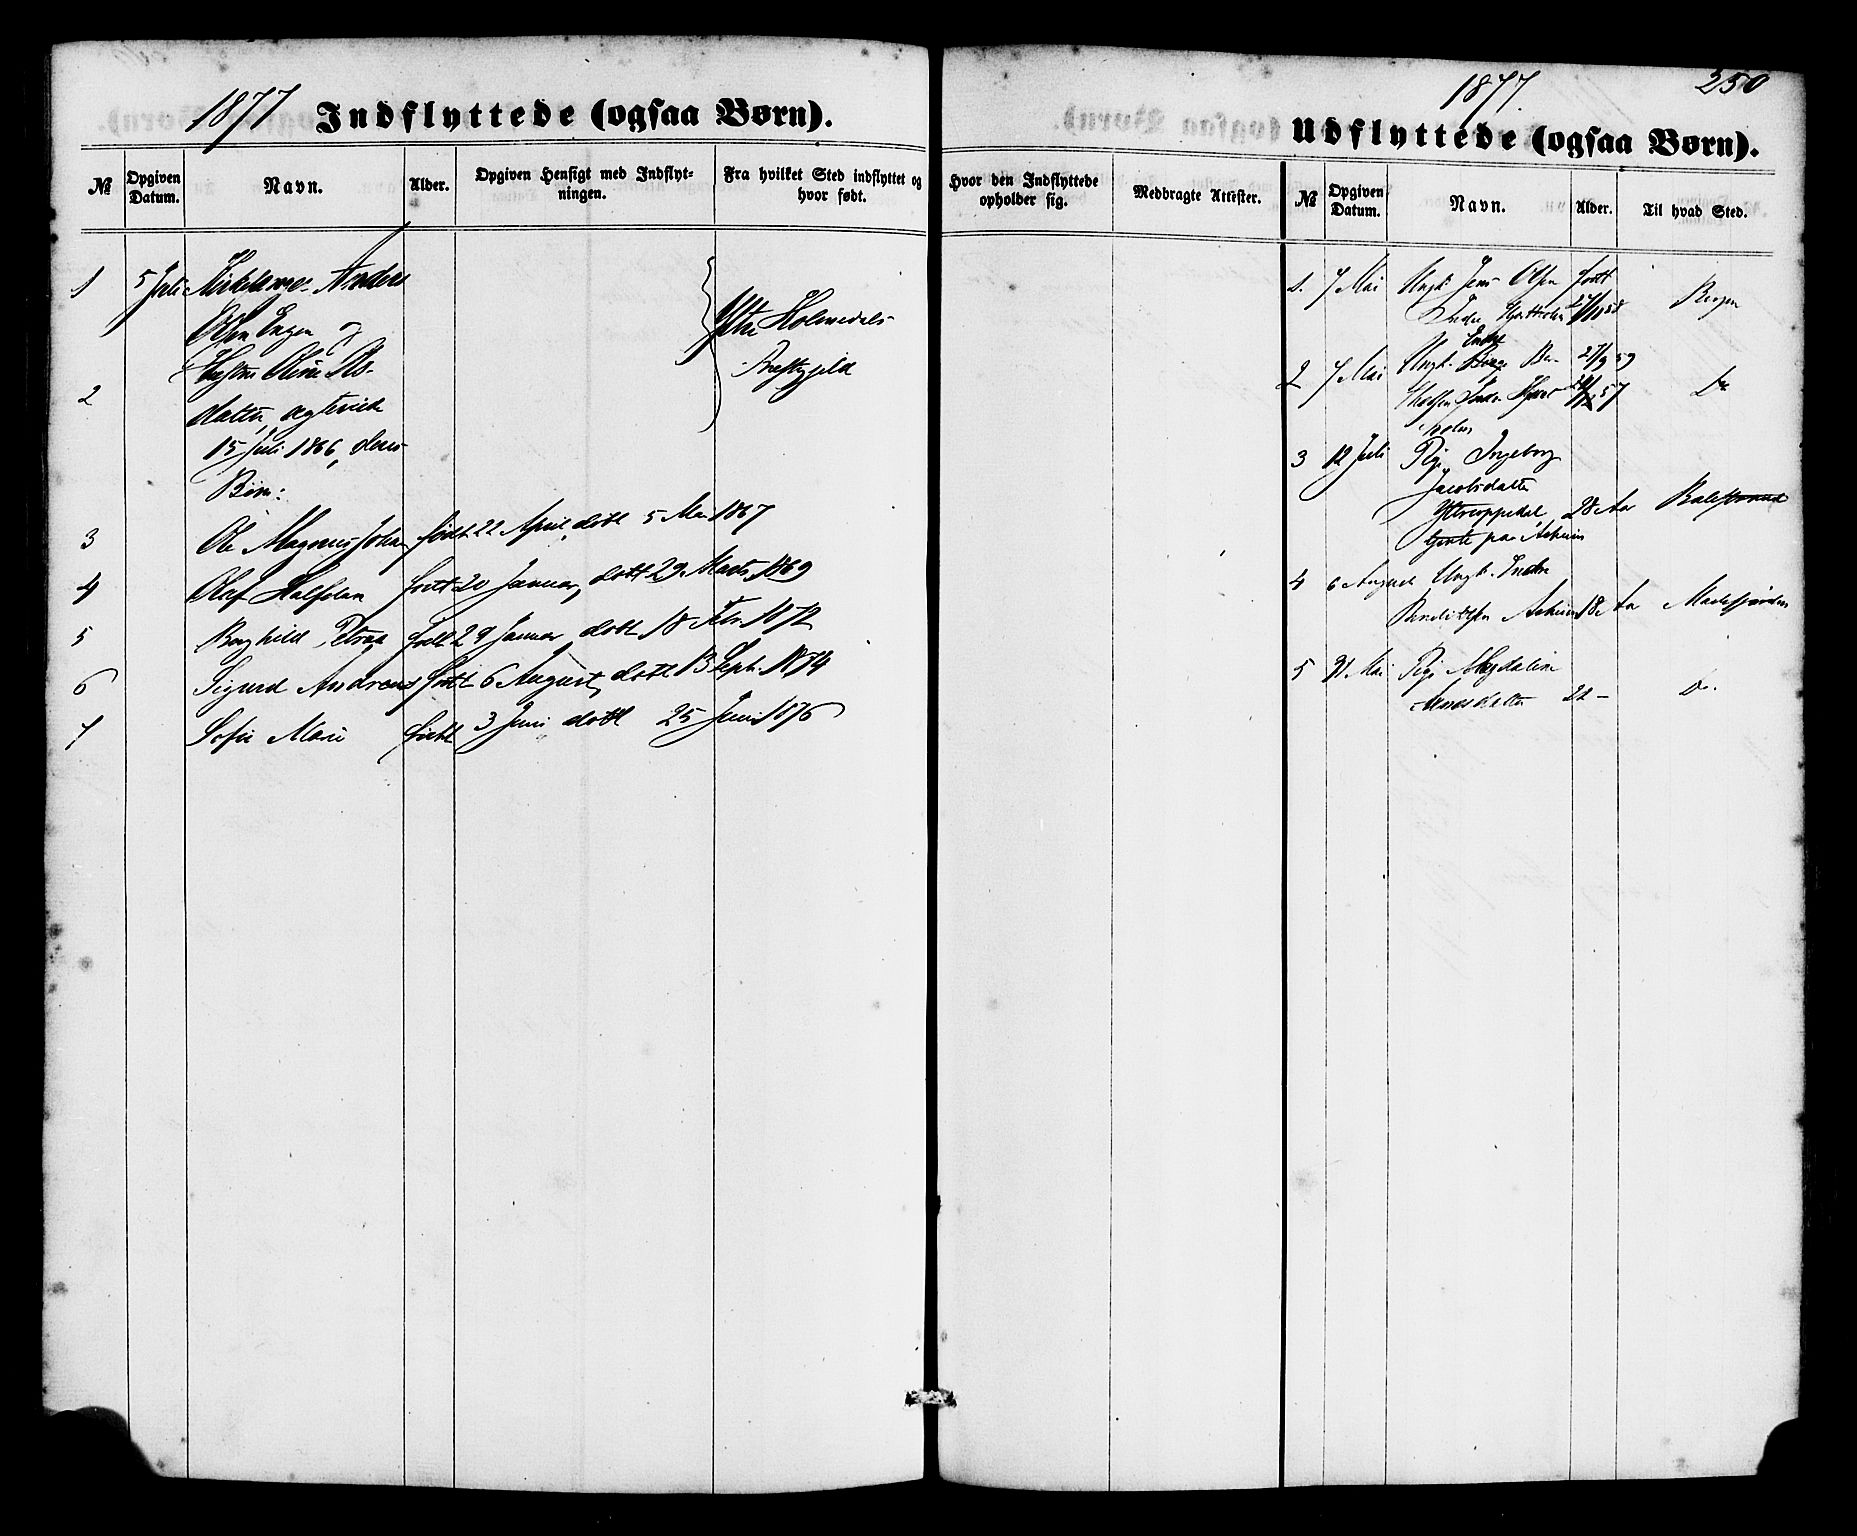 1877 Indflyttede (ogsaa Børn).
№ Opgiven Datum. Navn. Alder. Opgiven Hensigt med Indflytningen. Fra hvilket Sted indflyttet og hvor født.
1 5 Juli Anders
Olsen Engen og
Ytre Holmedals
Præstegjeld
2 Hustru Oline Ols-
datter, ægteviede
15 Juli 1866, deres
Børn:
3 Ole Magnus Johan født 22 April, døbt 5 Mai 1867
4 Olaf Halfdan født 20 Januar, døbt 29 Marts 1869
5 Borghild Petrea født 29 Januar døbt 18 Febr 1872
6 Sigurd Andreas født 6 August, døbt 13 Septr. 1874
7 Sofie Marie født 3 Juni døbt 25 Juni 1876
250
Hvor den Indflyttede opholder sig. Medbragte Attester.
1877. Udflyttede (ogsaa Børn).
№ Opgiven Datum. Navn. Alder. Til hvad Sted.
1. 7 Mai Ungk. Jens Olsen født
Bergen
2 7 Mai Ungk. 27/9 59
Do
3 12 Juli Pige Ingeborg
Jacobsdatter
Ytreoppedal 28 Aar Balestrand
4 6 August Ungk. Endre
18 Aar
5 31 Mai Pige Magdalene
22 — Do.